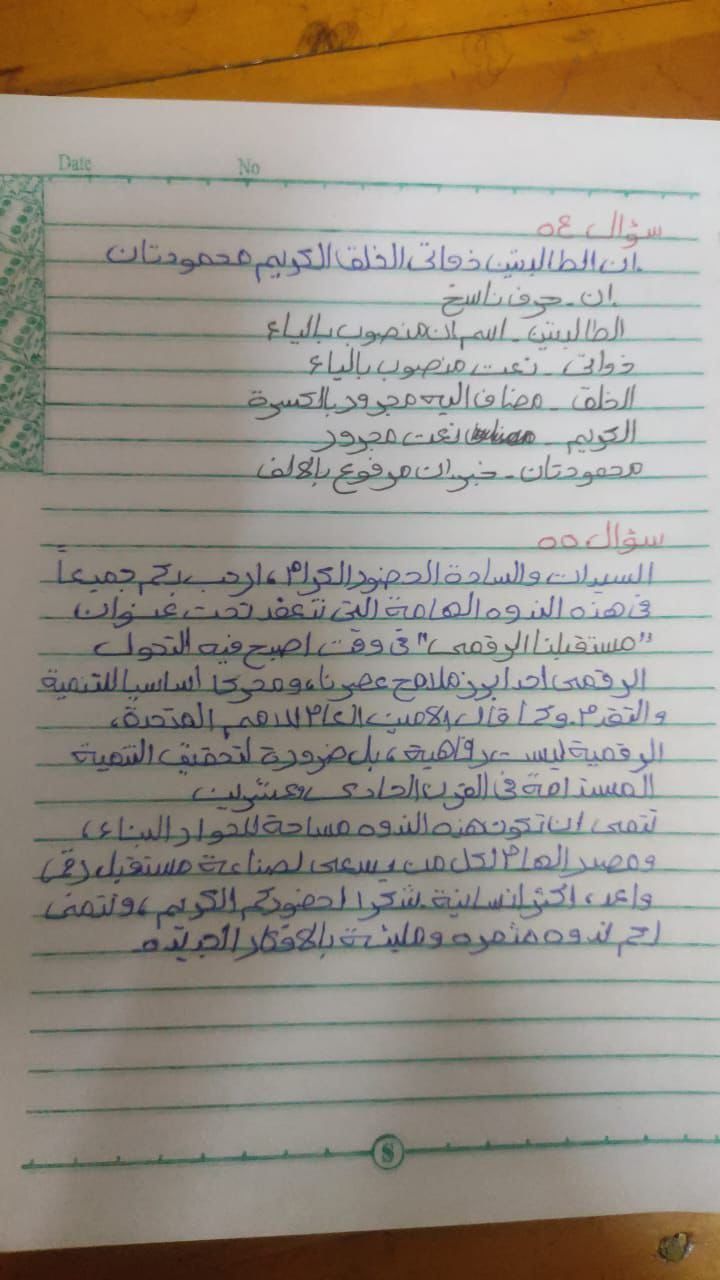 Date No
سؤال ٥٤
ان الطالبتين ذواتي الخلق الكريم محمودتان
ان - حرف ناسخ
الطالبتين - اسم ان منصوب بالياء
ذواتى - نعت منصوب بالياء
الخلق - مضاف اليه مجرور بالكسرة
الكريم - نعت مجرور
محمودتان - خبر ان مرفوع بالالف
سؤال ٥٥
السيدات والسادة الحضور الكرام، ارحب بكم جميعاً
فى هذه الندوه الهامة التى تنعقد تحت عنوان
"مستقبلنا الرقمى" فى وقت اصبح فيه التحول
الرقمى احد ابرز ملامح عصرنا، ومحركا أساسيا للتنمية
والتقدم. وكما قال الامين العام للامم المتحدة،
الرقمية ليست رفاهية، بل ضرورة لتحقيق التنمية
المستدامة فى القرن الحادى وعشرين
نتمى ان تكون هذه الندوه مساحة للحوار البناء،
ومصدر الهام لكل من يسعى لصناعة مستقبل رقمى
واعد، اكثر انسانية. شكرا لحضوركم الكريم، ونتمنى
لكم ندوه مثمره ومليئة بالافكار الجديده.
8